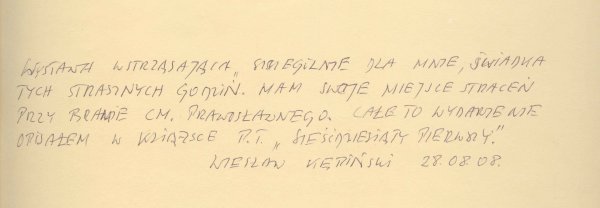 WYSTAWA WSTRZĄSAJĄCA, SZCZEGÓLNIE DLA MNIE, ŚWIADKA
TYCH STRASZNYCH GODZIN. MAM SWOJE MIEJSCE STRACEŃ
PRZY BRAMIE CM. PRAWOSŁAWNEGO. CAŁE TO WYDARZENIE
OPISAŁEM W KSIĄŻCE P.T. „SIEŚĆDZIESIĄTY PIERWSZY."
WIESŁAW KĘPIŃSKI 28.08.08.